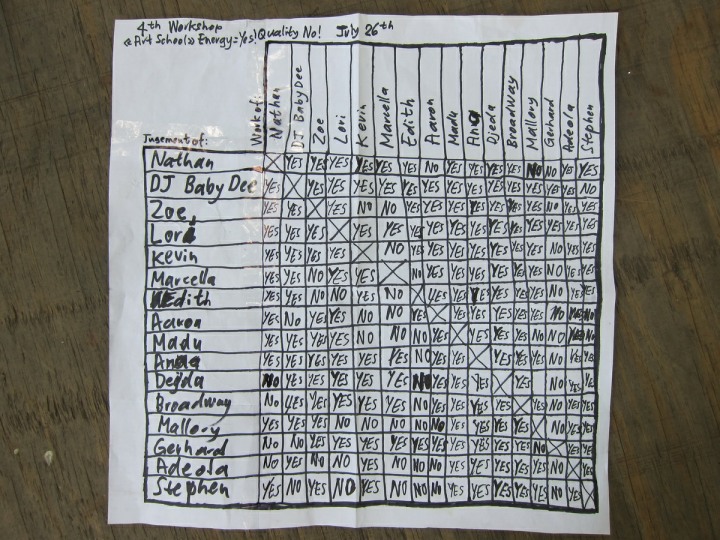 4th Workshop
«Art School» Energy=Yes! Quality No! July 26th
Jugement of: Work of: Nathan DJ BabyDee Zoe Lori Kevin Marcella Edith Aaron Madu Ana Djeda Broadway Mallory Gerhard Adeola Stephen
Nathan X YES YES YES YES YES YES NO YES YES YES YES NO NO YES YES
DJ Baby Dee YES X YES YES YES YES YES YES YES YES YES YES YES YES YES NO
Zoe YES YES X YES NO NO YES YES YES YES YES YES YES NO YES YES
Lori YES YES YES X YES YES YES YES YES YES YES YES YES YES YES YES
Kevin YES YES YES YES X NO YES YES YES YES YES YES YES NO YES YES
Marcella YES YES NO YES YES X NO YES YES YES YES YES YES NO YES YES
Edith YES YES NO NO YES NO X YES YES YES YES YES YES NO YES YES
Aaron YES NO YES YES NO NO YES X YES YES YES YES YES NO YES NO
Madu YES YES YES YES NO NO NO YES X YES YES YES NO NO YES NO
Anaa YES YES YES YES YES YES NO YES YES X YES YES YES NO YES YES
Dejda NO YES YES YES YES YES NO YES YES YES X YES NO YES YES
Broadway NO YES YES YES YES YES NO YES YES YES YES X YES NO YES YES
Mallory YES YES YES NO NO NO NO NO YES YES YES YES X NO YES YES
Gerhard NO NO YES YES YES YES YES YES YES YES YES YES NO X YES YES
Adeola NO YES NO NO YES NO NO NO YES YES YES YES YES NO X YES
Stephen YES NO YES NO YES NO NO NO YES YES YES YES YES NO YES X